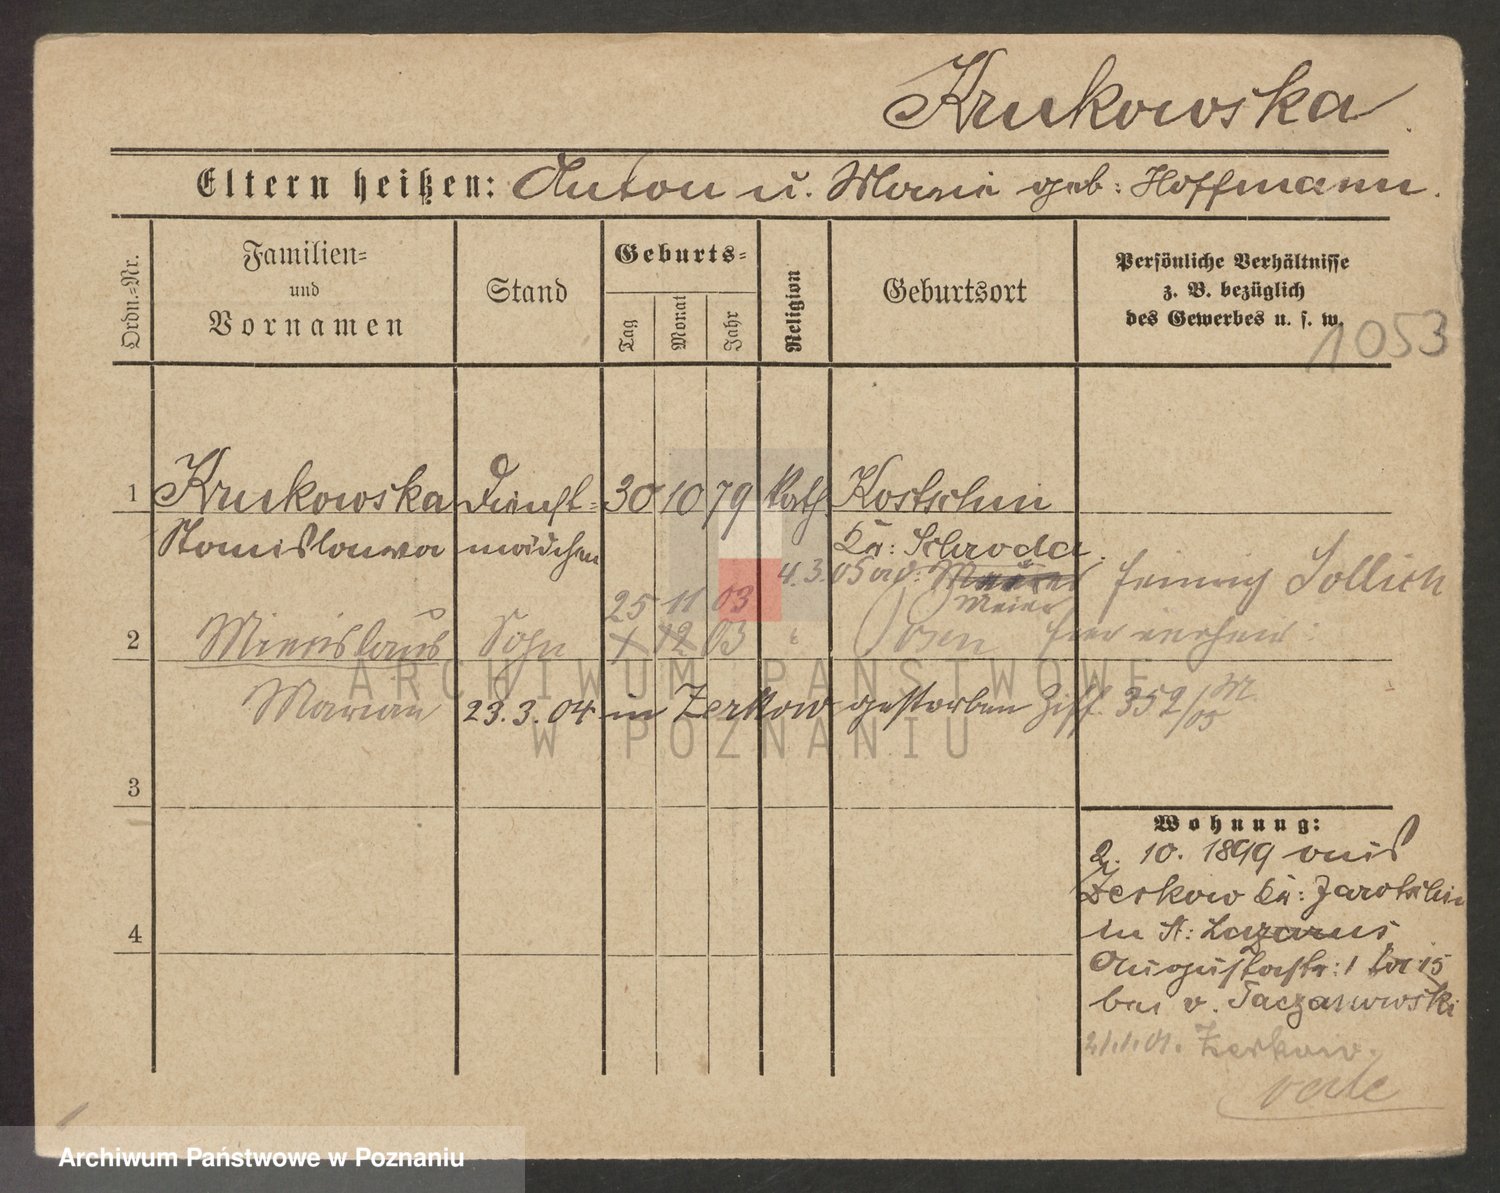 Krukowska
Eltern heißen: Anton u. Marie geb: Hoffmann.
Ordn.-Nr.
Familien-
und
Vornamen
Stand
Geburts-
Tag
Monat
Jahr
Religion
Geburtsort
Persönliche Verhältnisse
z. B. bezüglich
des Gewerbes u. s. w.
1053
1 Krukowska Dienst- 30 10 79 kath. Kostschin
Stanislawa mädchen Kr: Schroda.
4.3.05 Heinrich Sollich
25 11 03 Meier
2 Miecislaus Sohn 1 12 03 " Posen
Marian 23.3.04 in Zerkow gestorben Ziff. 352/05 M.
3
4
Wohnung:
2. 10. 1899 aus
Zerkow Kr: Jarotschin
in St: Lazarus
Augustastr: 1 15
bei v. Taczanowski
21.1.01. Zerkow.
ARCHIWUM PAŃSTWOWE
W POZNANIU
Archiwum Państwowe w Poznaniu